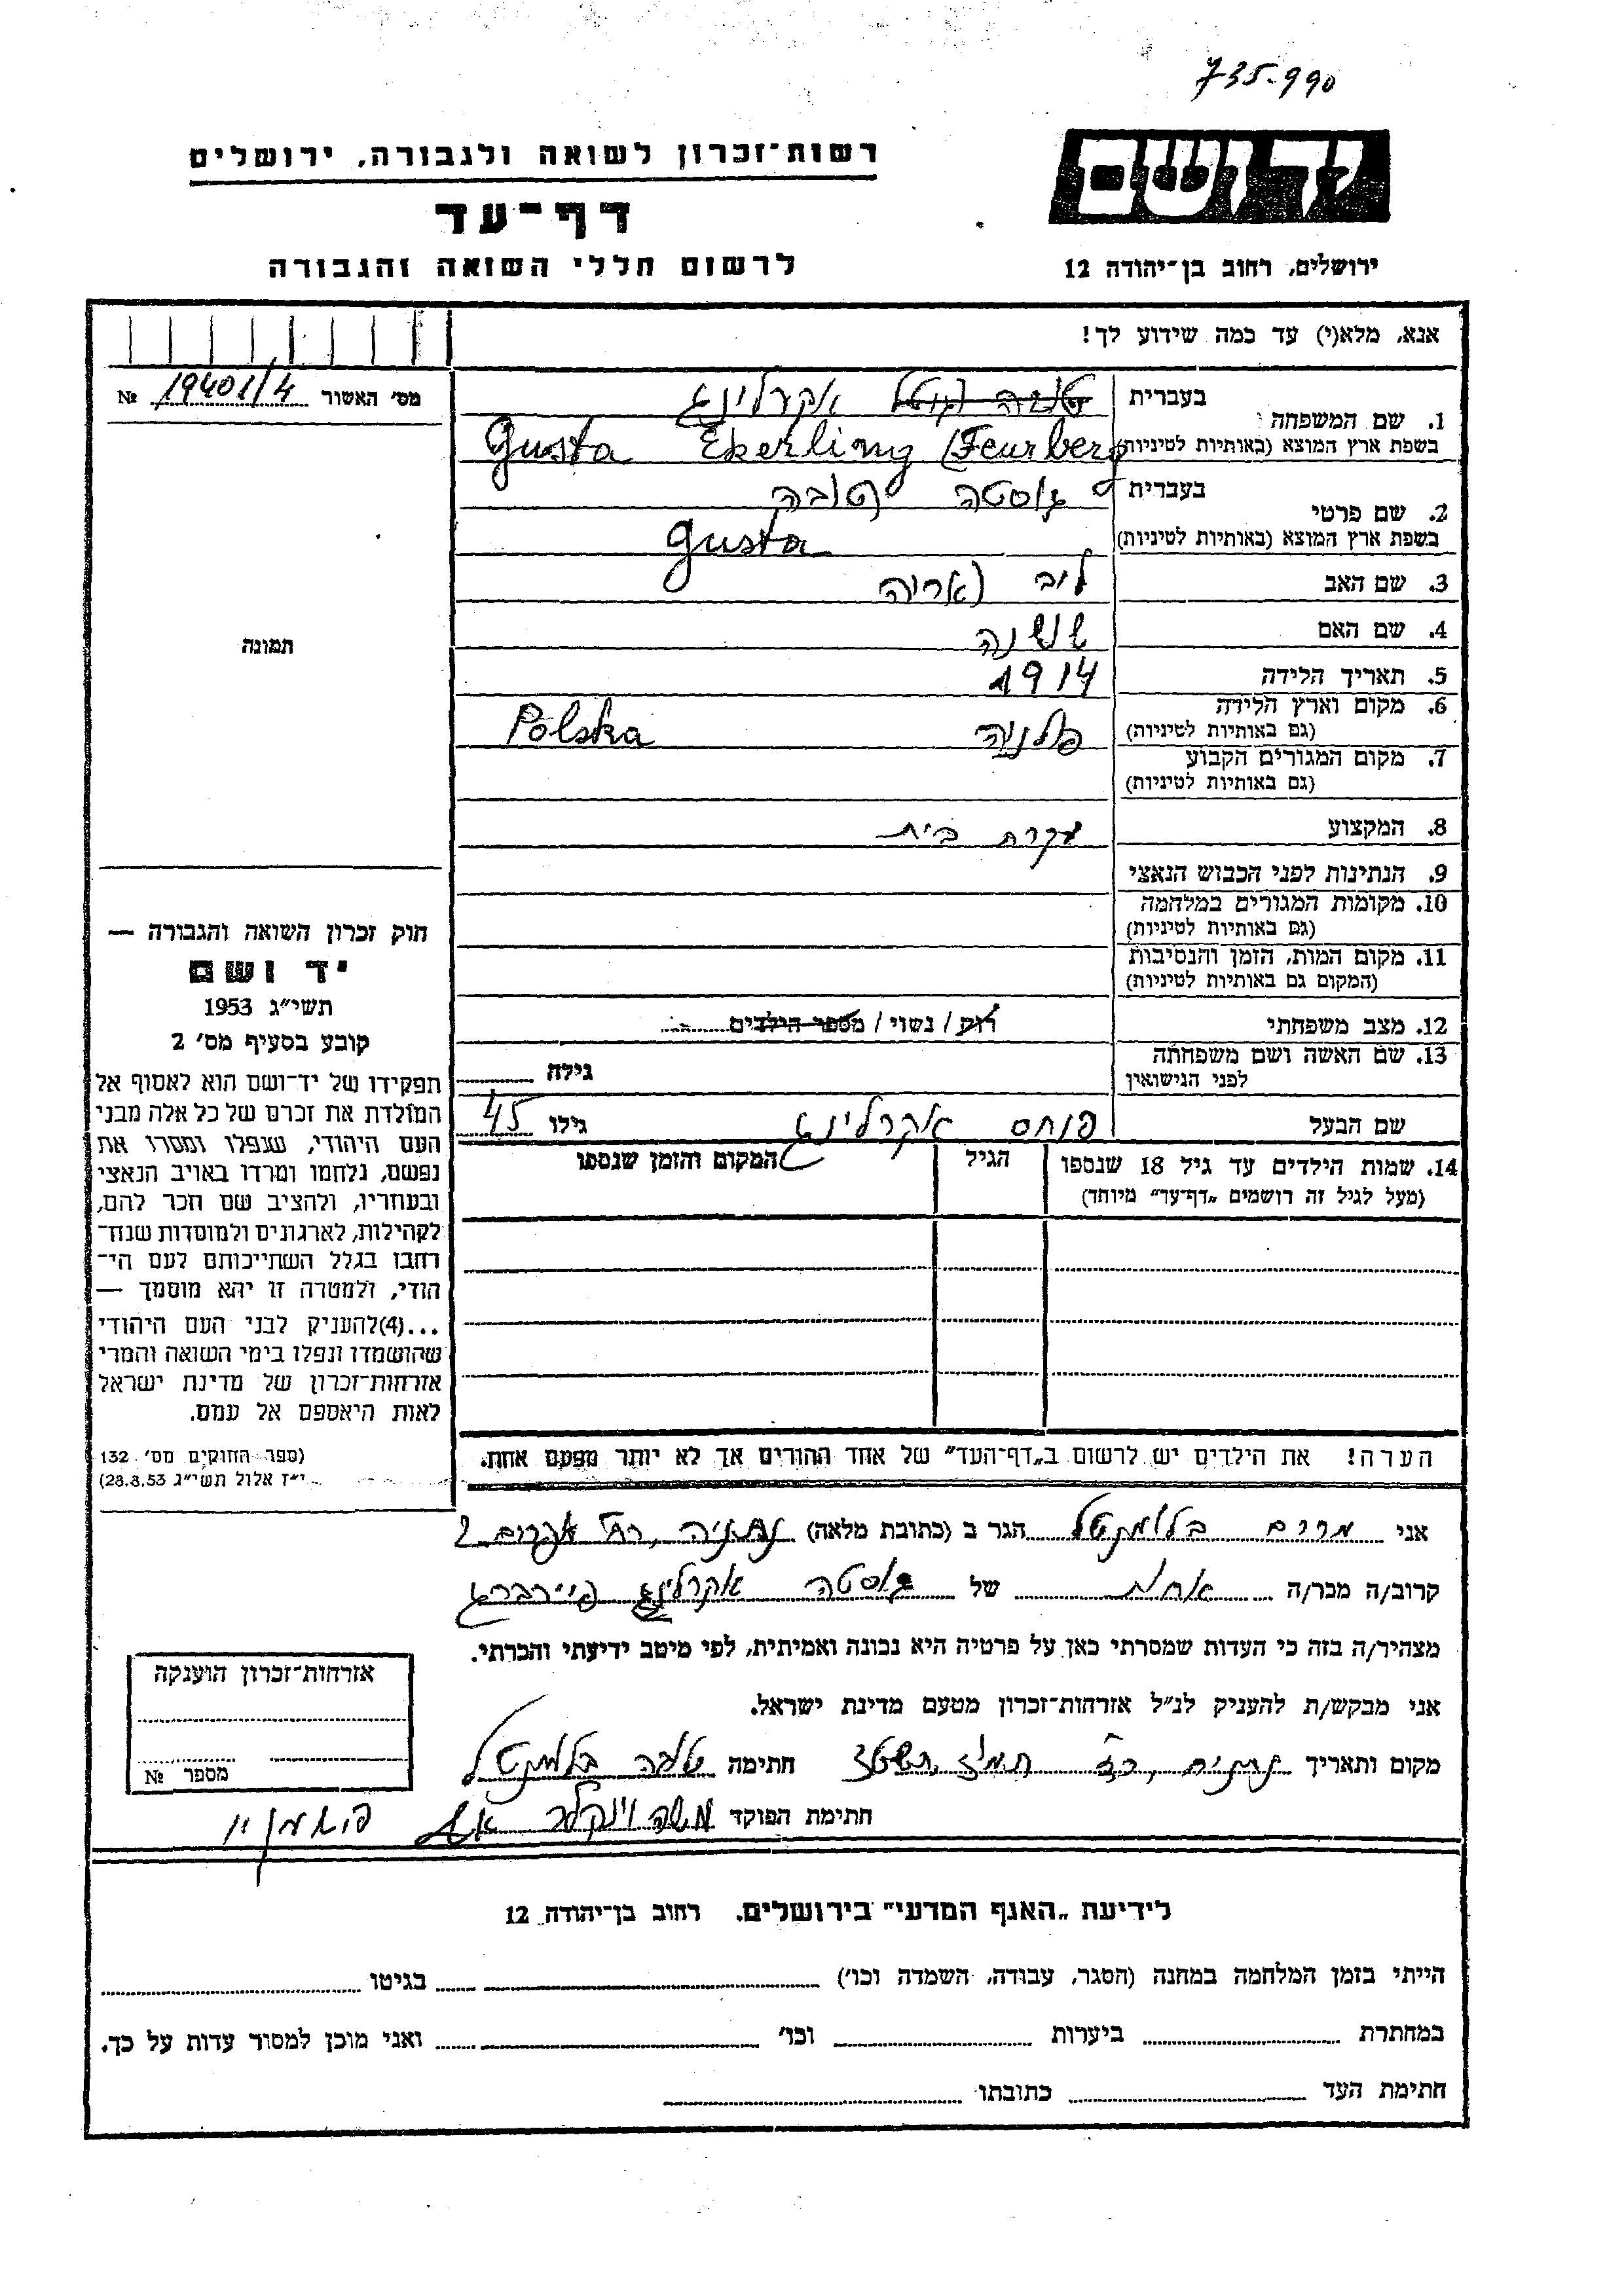 735-990
רשות-זכרון לשואה ולגבורה, ירושלים
יד ושם
דף-עד
לרשום חללי השואה והגבורה
ירושלים, רחוב בן-יהודה 12
אנא, מלא(י) עד כמה שידוע לך!
מס' האשור 19401/4 №
1. שם המשפחה
בעברית אקרלינג
בשפת ארץ המוצא (באותיות לטיניות) Gusta Ekerling (Feurberg
2. שם פרטי
בעברית גוסטה טובה
בשפת ארץ המוצא (באותיות לטיניות) Gusta
3. שם האב ליב (אריה
4. שם האם שושנה
5. תאריך הלידה 1914
6. מקום וארץ הלידה פולניה Polska
(גם באותיות לטיניות)
7. מקום המגורים הקבוע
(גם באותיות לטיניות)
8. המקצוע עקרת בית
9. הנתינות לפני הכבוש הנאצי
10. מקומות המגורים במלחמה
(גם באותיות לטיניות)
11. מקום המות, הזמן והנסיבות
(המקום גם באותיות לטיניות)
12. מצב משפחתי רוק / נשוי / מספר הילדים
13. שם האשה ושם משפחתה
לפני הנישואין גילה
שם הבעל פנחס אקרלינג גילו 45
14. שמות הילדים עד גיל 18 שנספו הגיל המקום והזמן שנספו
(מעל לגיל זה רושמים „דף-עד" מיוחד)
הערה! את הילדים יש לרשום ב„דף-העד" של אחד ההורים אך לא יותר מפעם אחת.
תמונה
חוק זכרון השואה והגבורה —
יד ושם
תשי"ג 1953
קובע בסעיף מס' 2
תפקידו של יד-ושם הוא לאסוף אל
המולדת את זכרם של כל אלה מבני
העם היהודי, שנפלו ומסרו את
נפשם, נלחמו ומרדו באויב הנאצי
ובעוזריו, ולהציב שם וזכר להם,
לקהילות, לארגונים ולמוסדות שנח-
רבו בגלל השתייכותם לעם הי-
הודי, ולמטרה זו יהא מוסמך —
...(4)להעניק לבני העם היהודי
שהושמדו ונפלו בימי השואה והמרי
אזרחות-זכרון של מדינת ישראל
לאות היאספם אל עמם.
(ספר החוקים מס' 132
י"ז אלול תשי"ג 28.8.53)
אני מרים בלומקטל הגר ב (כתובת מלאה) נתניה, רח' 2
קרוב/ה מכר/ה אחות של גוסטה אקרלינג פיירברג
מצהיר/ה בזה כי העדות שמסרתי כאן על פרטיה היא נכונה ואמיתית, לפי מיטב ידיעתי והכרתי.
אני מבקש/ת להעניק לנ"ל אזרחות-זכרון מטעם מדינת ישראל.
מקום ותאריך נתניה, תמוז חתימה בלומקטל
חתימת הפוקד משה וינקלר
אזרחות-זכרון הוענקה
מספר №
לידיעת „האגף המדעי" בירושלים. רחוב בן-יהודה 12
הייתי בזמן המלחמה במחנה (הסגר, עבודה, השמדה וכו') בגיטו
במחתרת ביערות וכו' ואני מוכן למסור עדות על כך.
חתימת העד כתובתו